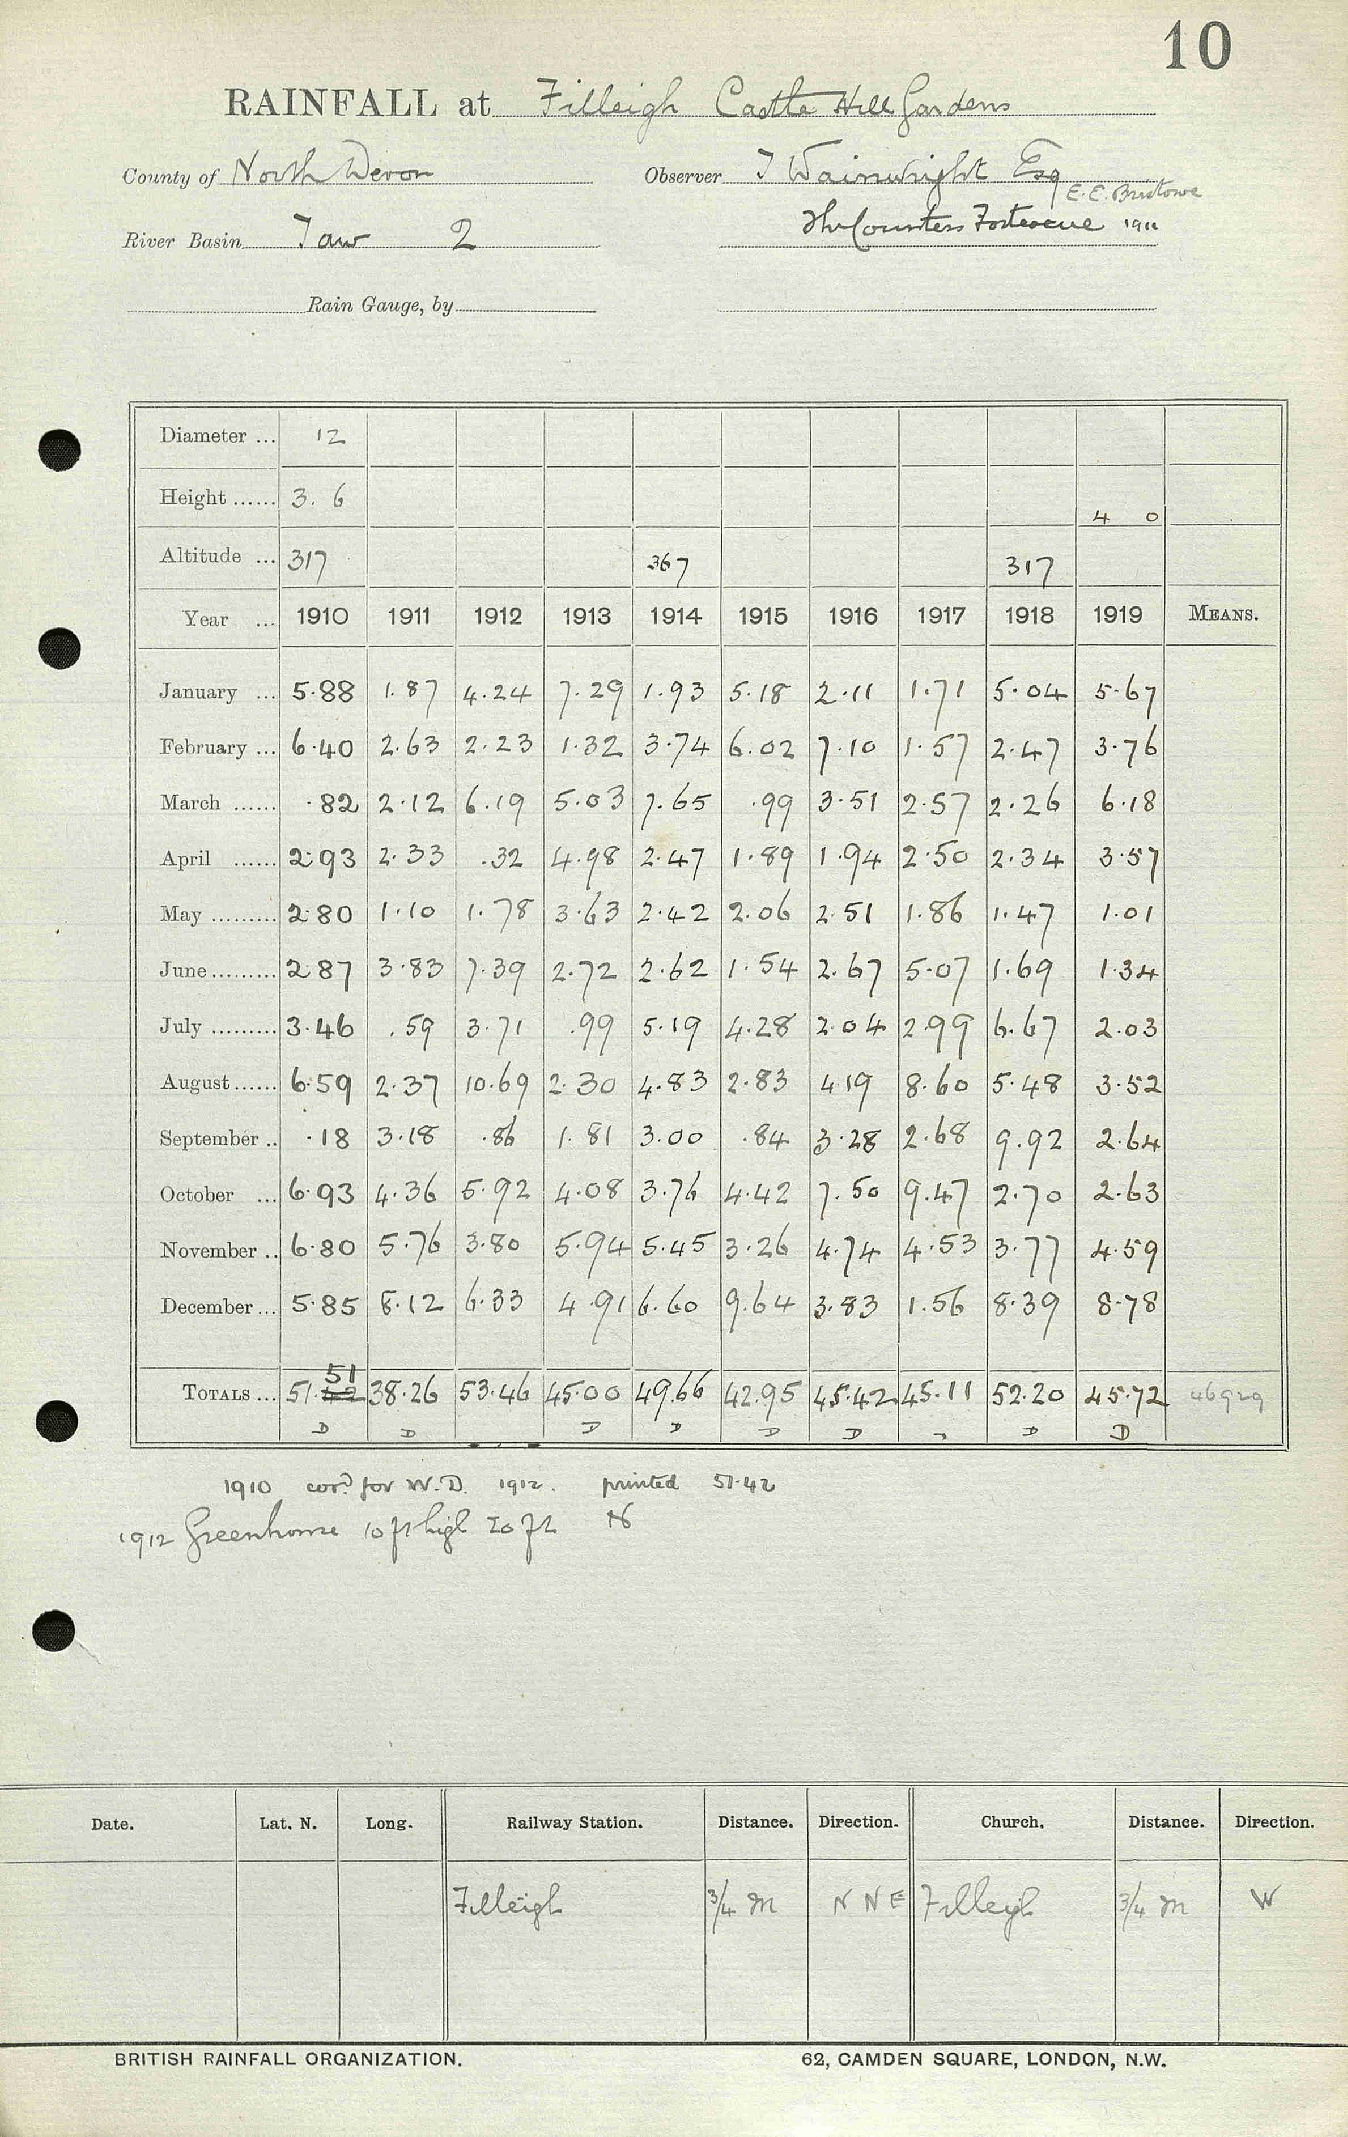 10
RAINFALL at Filleigh Castle Hill Gardens
County of North Devon Observer J Wainwright Esq
E.E. Bristowe
River Basin Taw 2 The Countess Fortescue 1911
Rain Gauge, by
Diameter ... 12
Height ...... 3. 6 4 0
Altitude ... 317 367 317
Year ... 1910 1911 1912 1913 1914 1915 1916 1917 1918 1919 MEANS.
January ... 5.88 1.87 4.24 7.29 1.93 5.18 2.11 1.71 5.04 5.67
February ... 6.40 2.63 2.23 1.32 3.74 6.02 7.10 1.57 2.47 3.76
March ...... .82 2.12 6.19 5.03 7.65 .99 3.51 2.57 2.26 6.18
April ...... 2.93 2.33 .32 4.98 2.47 1.89 1.94 2.50 2.34 3.57
May .......... 2.80 1.10 1.78 3.63 2.42 2.06 2.51 1.86 1.47 1.01
June ......... 2.87 3.83 7.39 2.72 2.62 1.54 2.67 5.07 1.69 1.34
July ......... 3.46 .59 3.71 .99 5.19 4.28 2.04 2.99 6.67 2.03
August ...... 6.59 2.37 10.69 2.30 4.83 2.83 4.19 8.60 5.48 3.52
September .. .18 3.18 .86 1.81 3.00 .84 3.28 2.68 9.92 2.64
October ... 6.93 4.36 5.92 4.08 3.76 4.42 7.50 9.47 2.70 2.63
November .. 6.80 5.76 3.80 5.94 5.45 3.26 4.74 4.53 3.77 4.59
December ... 5.85 8.12 6.33 4.91 6.60 9.64 3.83 1.56 8.39 8.78
51
TOTALS ... 51.42 38.26 53.46 45.00 49.66 42.95 45.42 45.11 52.20 45.72 46929
D D D D D D D D
1910 cord for W.D. 1912. printed 51.42
1912 Greenhouse 10 ft high 20 ft N
Date. Lat. N. Long. Railway Station. Distance. Direction. Church. Distance. Direction.
Filleigh 3/4 m N N E Filleigh 3/4 m W
BRITISH RAINFALL ORGANIZATION. 62, CAMDEN SQUARE, LONDON, N.W.